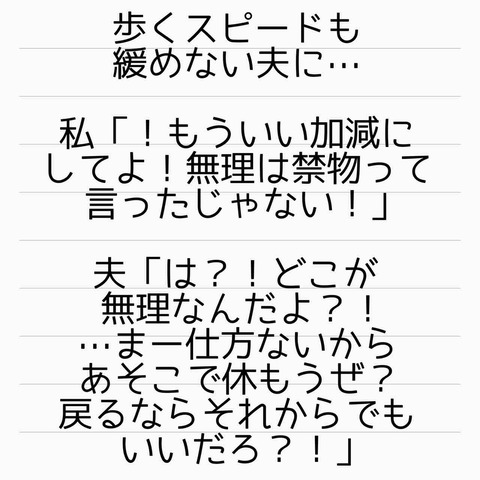 歩くスピードも
緩めない夫に…
私「！もういい加減に
してよ！無理は禁物って
言ったじゃない！」
夫「は？！どこが
無理なんだよ？！
…まー仕方ないから
あそこで休もうぜ？
戻るならそれからでも
いいだろ？！」